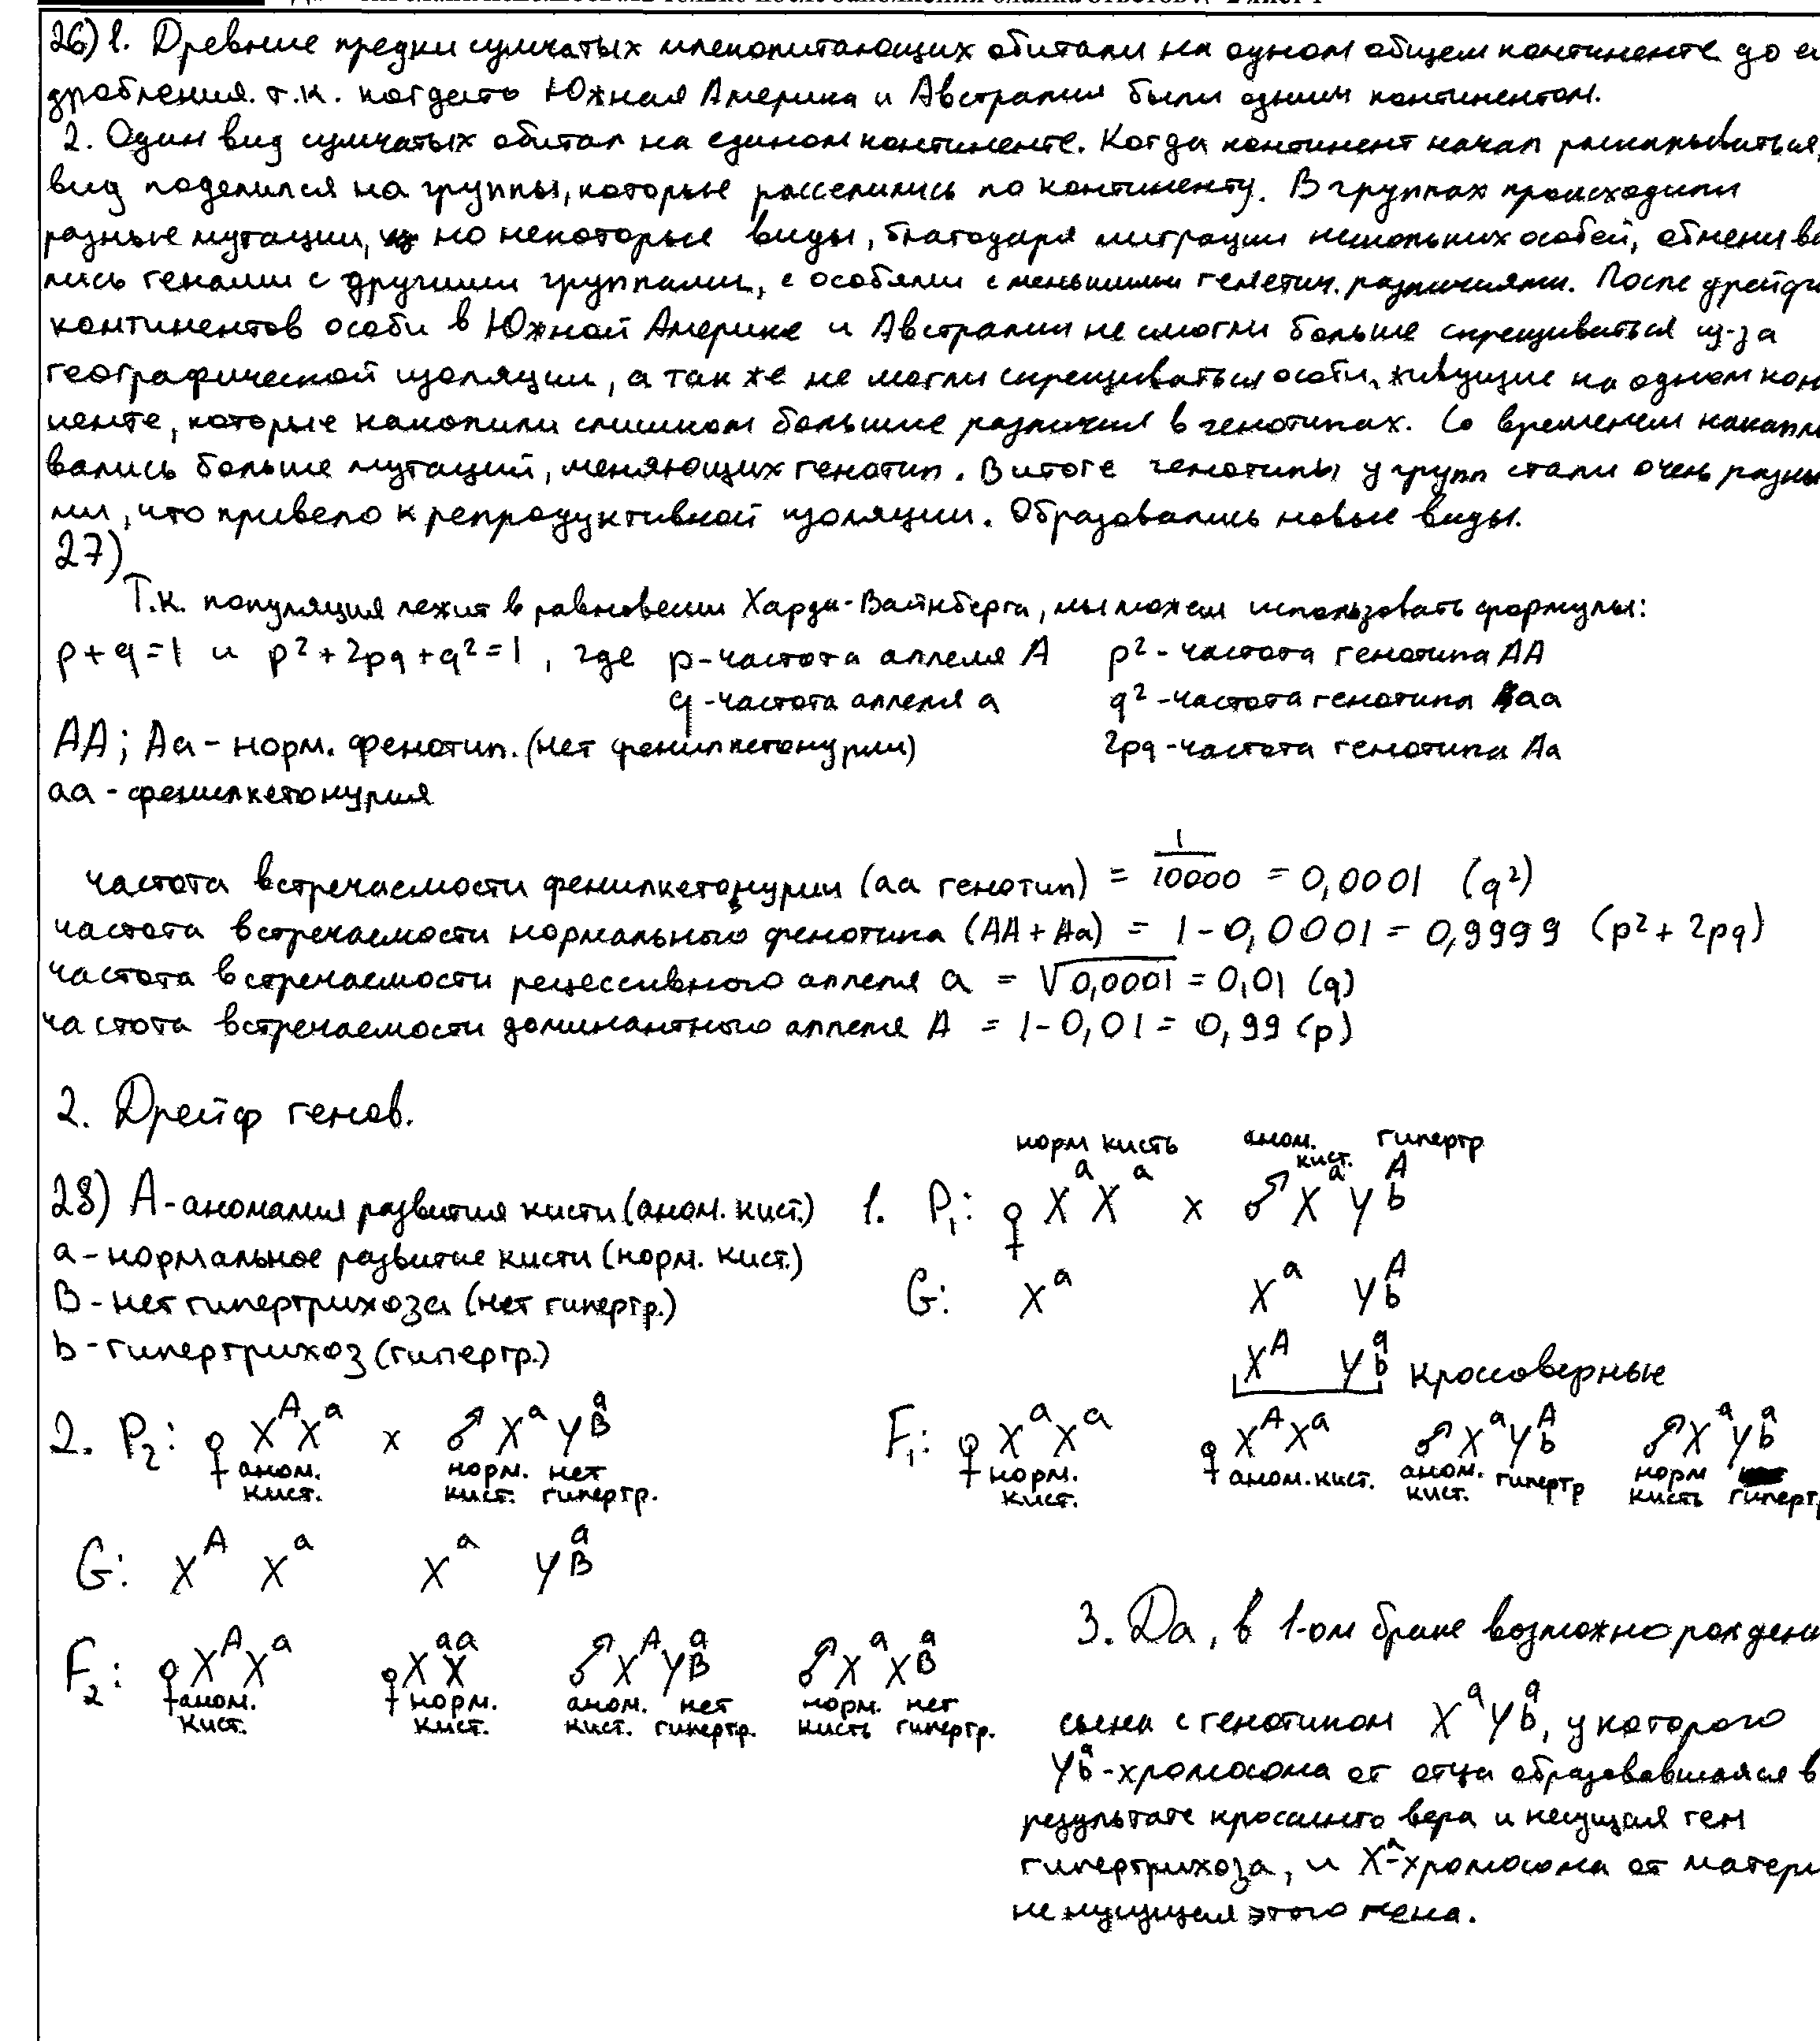 26) 1. Древние предки сумчатых млекопитающих обитали на одном общем континенте до ег
дробления. т.к. когдато Южная Америка и Австралия были одним континентом.
2. Один вид сумчатых обитал на едином континенте. Когда континент начал раскалываться,
вид поделился на группы, которые расселились по континенту. В группах происходили
разные мутации, но некоторые виды, благодаря миграции нескольких особей, обменива
лись генами с другими группами, с особями с меньшими генетич. различиями. После дрейфа
континентов особи в Южной Америке и Австралии не смогли больше скрещиваться из-за
географической изоляции, а так же не могли скрещиваться особи, живущие на одном кон
ненте, которые накопили слишком большие различия в генотипах. Со временем накапли
вались больше мутаций, меняющих генотип. В итоге генотипы у групп стали очень разны
ми, что привело к репродуктивной изоляции. Образовались новые виды.
27)
Т.к. популяция лежит в равновесии Харди-Вайнберга, мы можем использовать формулы:
p+q=1 и p²+2pq+q²=1, где p-частота аллеля A p²-частота генотипа AA
q-частота аллеля a q²-частота генотипа aa
AA; Aa - норм. фенотип. (нет фенилкетонурии) 2pq-частота генотипа Aa
aa - фенилкетонурия
частота встречаемости фенилкетонурии (aa генотип) = 1/10000 = 0,0001 (q²)
частота встречаемости нормального фенотипа (AA+Aa) = 1-0,0001=0,9999 (p²+2pq)
частота встречаемости рецессивного аллеля a = √0,0001=0,01 (q)
частота встречаемости доминантного аллеля A = 1-0,01=0,99 (p)
2. Дрейф генов.
норм кисть аном. кист. гипертр
28) A-аномалия развития кисти (аном. кист.) 1. P₁: ♀ XᵃXᵃ x ♂ XᵃYᴬb
a-нормальное развитие кисти (норм. кист.)
B-нет гипертрихоза (нет гипертр.) G: Xᵃ Xᵃ Yᴬb
b-гипертрихоз (гипертр.) Xᴬ Yᵃb кроссоверные
2. P₂: ♀ XᴬXᵃ x ♂ XᵃYᵃB F₁: ♀ XᵃXᵃ ♀ XᴬXᵃ ♂ XᵃYᴬb ♂ XᵃYᵃb
аном. кист. норм. кист. нет гипертр. норм. кист. аном. кист. аном. кист. гипертр норм кисть гипертр
G: Xᴬ Xᵃ Xᵃ YᵃB
3. Да, в 1-ом браке возможно рождени
F₂: ♀ XᴬXᵃ ♀ XᵃXᵃ ♂ XᴬYᵃB ♂ XᵃXᵃB
аном. кист. норм. кист. аном. кист. нет гипертр. норм. кисть нет гипертр.
сына с генотипом XᵃYᵃb, у которого
Yᵃb-хромосома от отца образовавшаяся в
результате кроссинго вера и несущая ген
гипертрихоза, и Xᵃ-хромосома от матери
не нусущая этого гена.